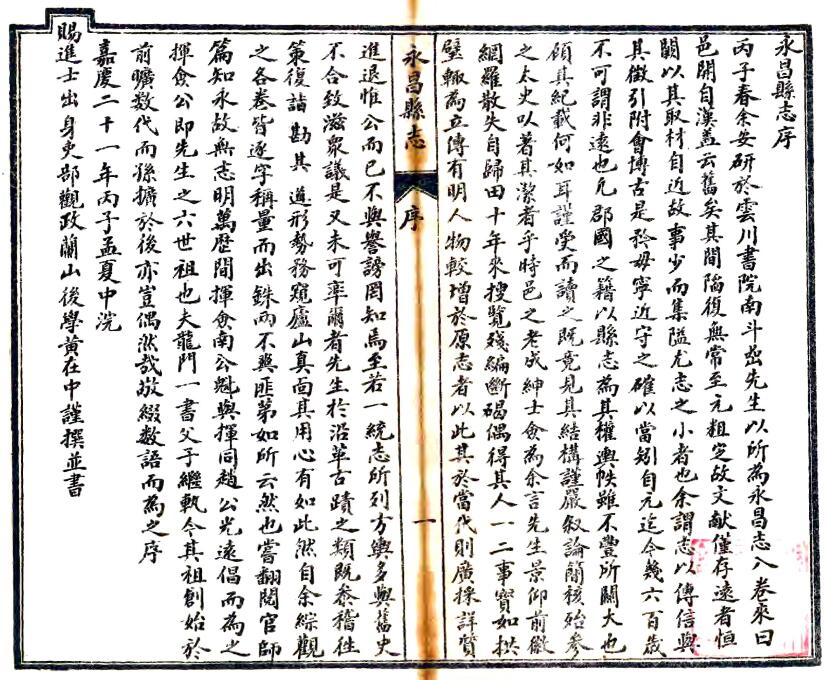 永昌縣志序
丙子春余安研於雲川書院南斗嵒先生以所為永昌志八卷來曰
邑開自漢蓋云舊矣其間陷復無常至元粗定故文獻僅存遠者恒
闕以其取材自近故事少而集隘尤志之小者也余謂志以傳信與
其徵引附會博古是矜毋寧近守之確以當矧自元迄今幾六百歲
不可謂非遠也凡郡國之籍以縣志為其權輿帙雖不豐所關大也
顧其紀載何如耳謹受而讀之既竟見其結構謹嚴敘論簡核殆參
之太史以著其潔者乎時邑之老成紳士僉為余言先生景仰前徽
網羅散失自歸田十年來搜覽殘編斷碣偶得其人一二事寶如拱
璧輒為立傳有明人物較增於原志者以此其於當代則廣採詳質
永昌縣志
序
一
進退惟公而已不與譽謗罔知焉至若一統志所列方輿多與舊史
不合致滋眾議是又未可率爾者先生於沿革古蹟之類既參稽往
策復詣勘其道形勢務窺廬山真面其用心有如此然自余綜觀
之各卷皆逐字稱量而出銖兩不爽匪第如所云然也嘗翻閱官師
篇知永故無志明萬歷間揮僉南公魁與揮同趙公光遠倡而為之
揮僉公即先生之六世祖也夫龍門一書父子繼執今其祖創始於
前曠數代而孫擴於後亦豈偶然哉故綴數語而為之序
嘉慶二十一年丙子孟夏中浣
賜進士出身吏部觀政蘭山後學黃在中謹撰並書